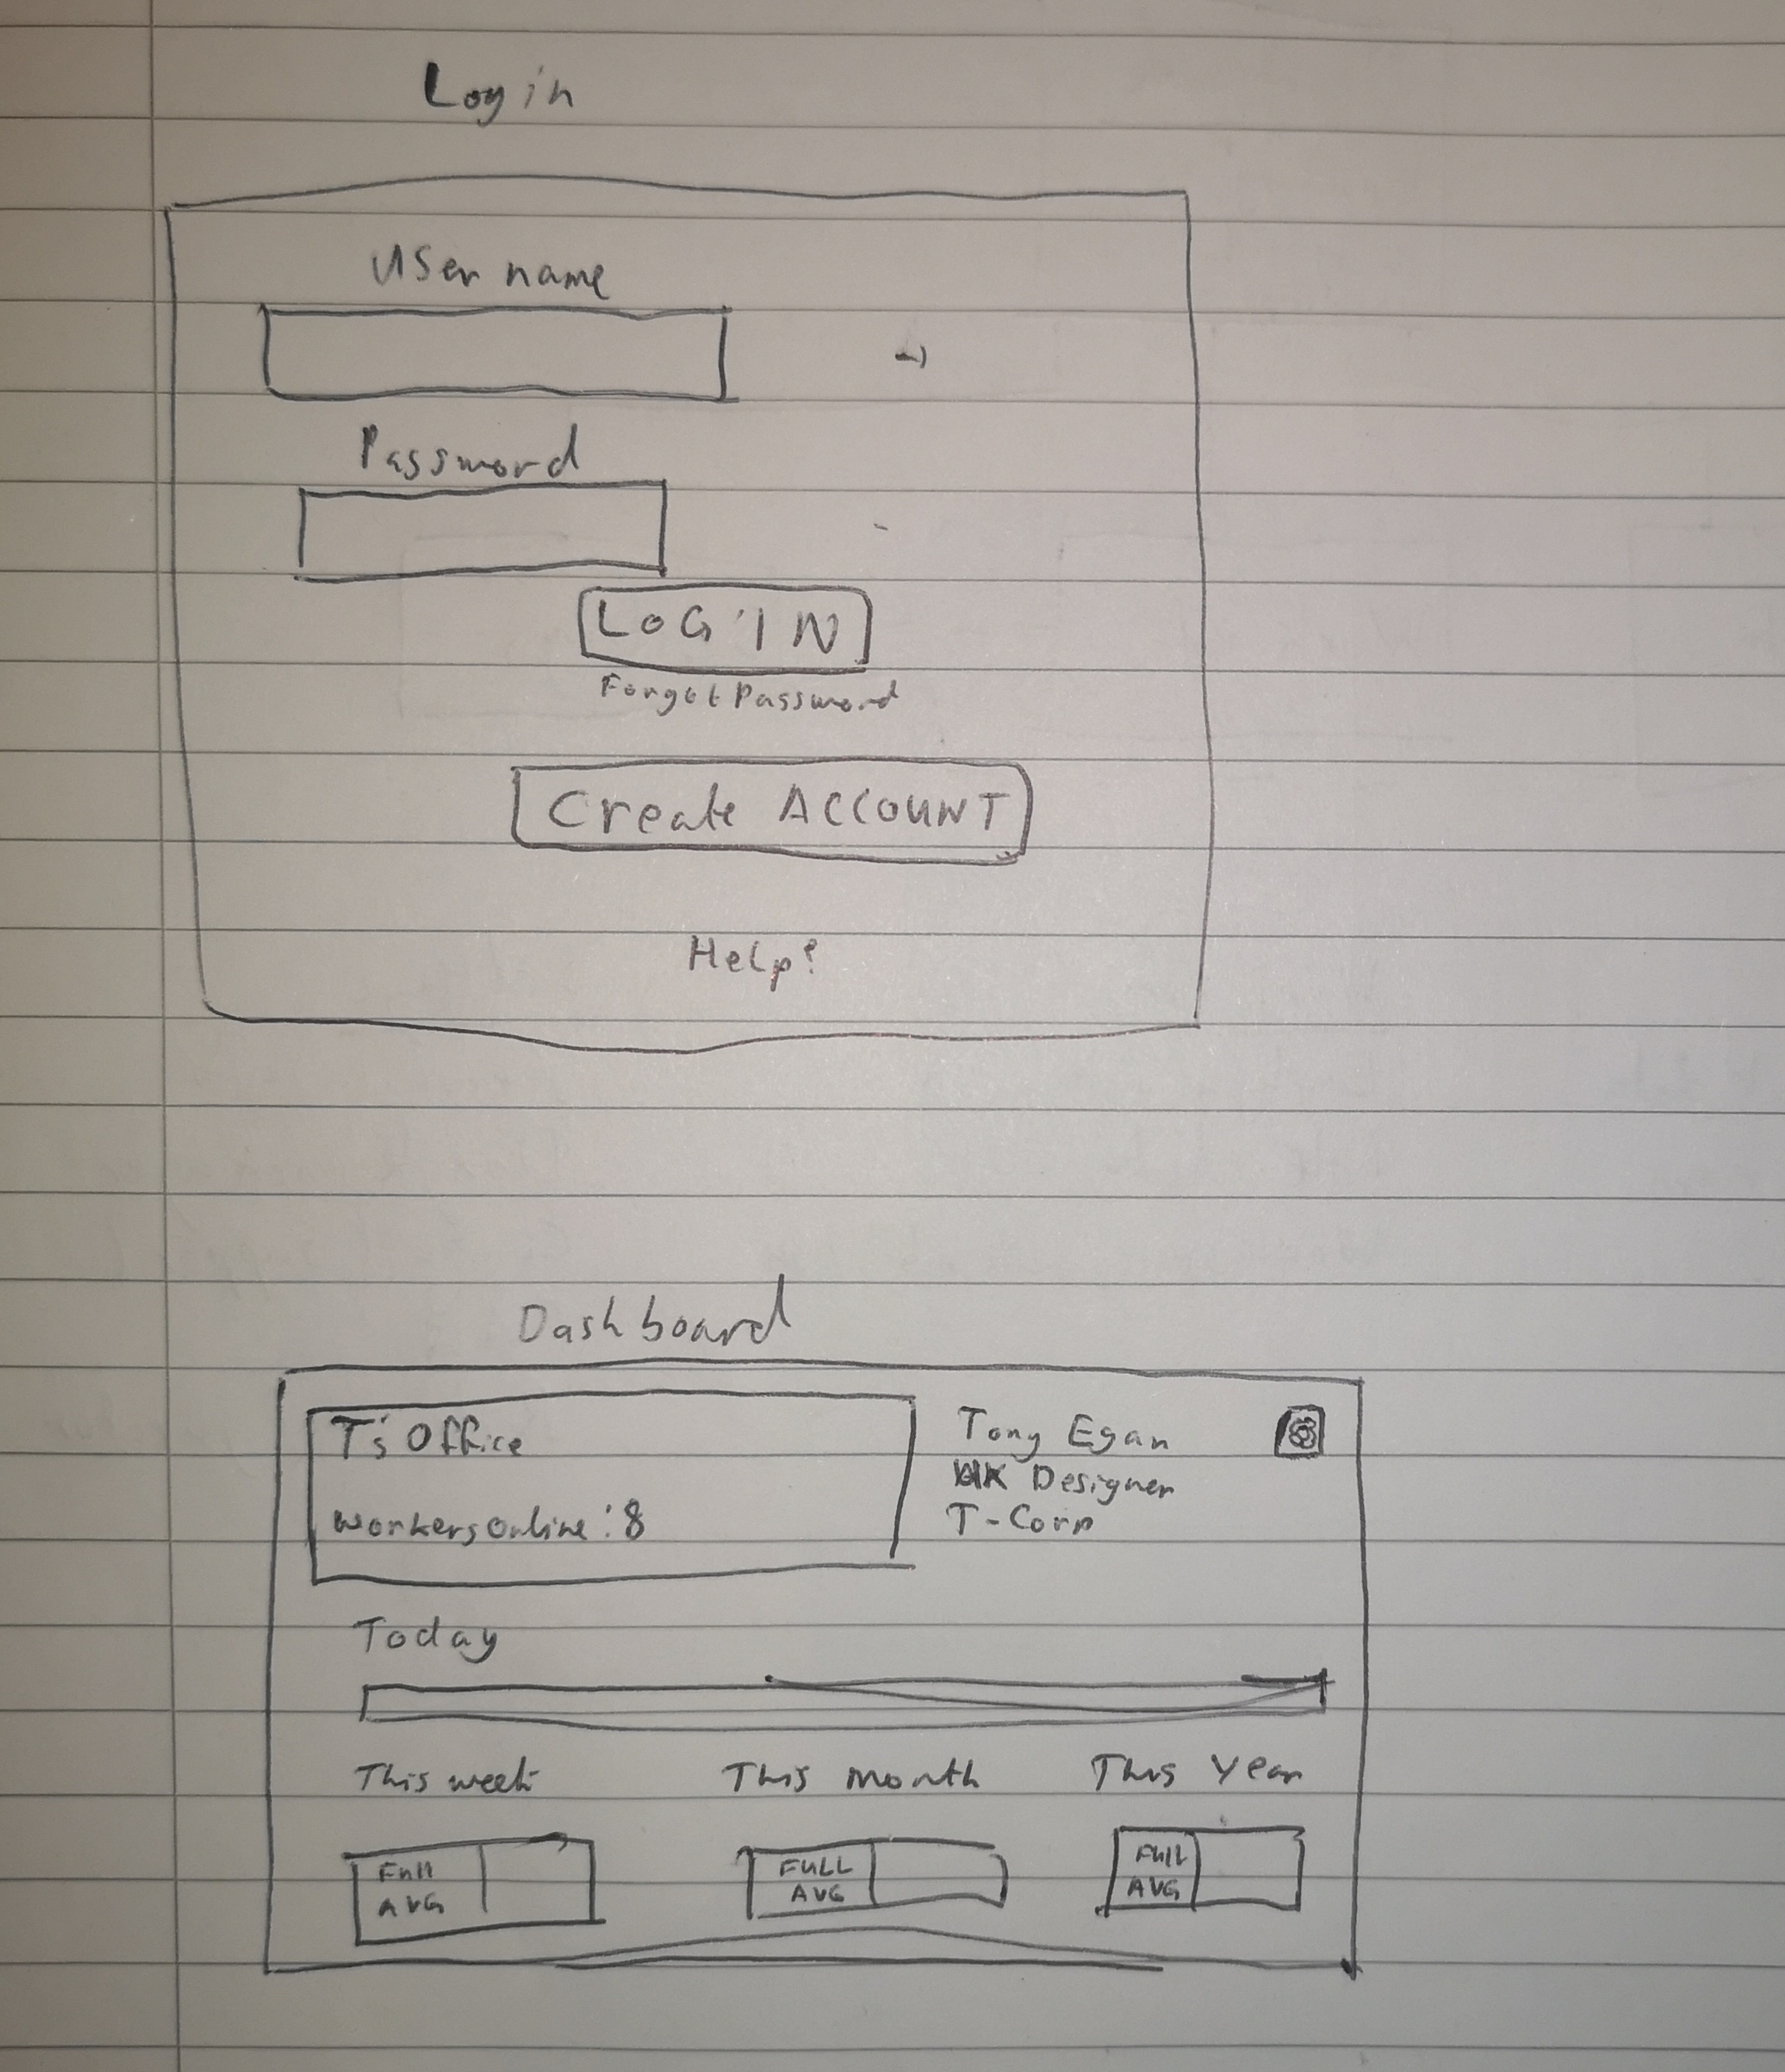 Login
User name
Password
LOGIN
Forgot Password
Create ACCOUNT
Help?
Dashboard
T's Office
Workers Online: 8
Tony Egan
Designer
T-Corp
Today
This week
This Month
This Year
Full
AVG
FULL
AVG
Full
AVG